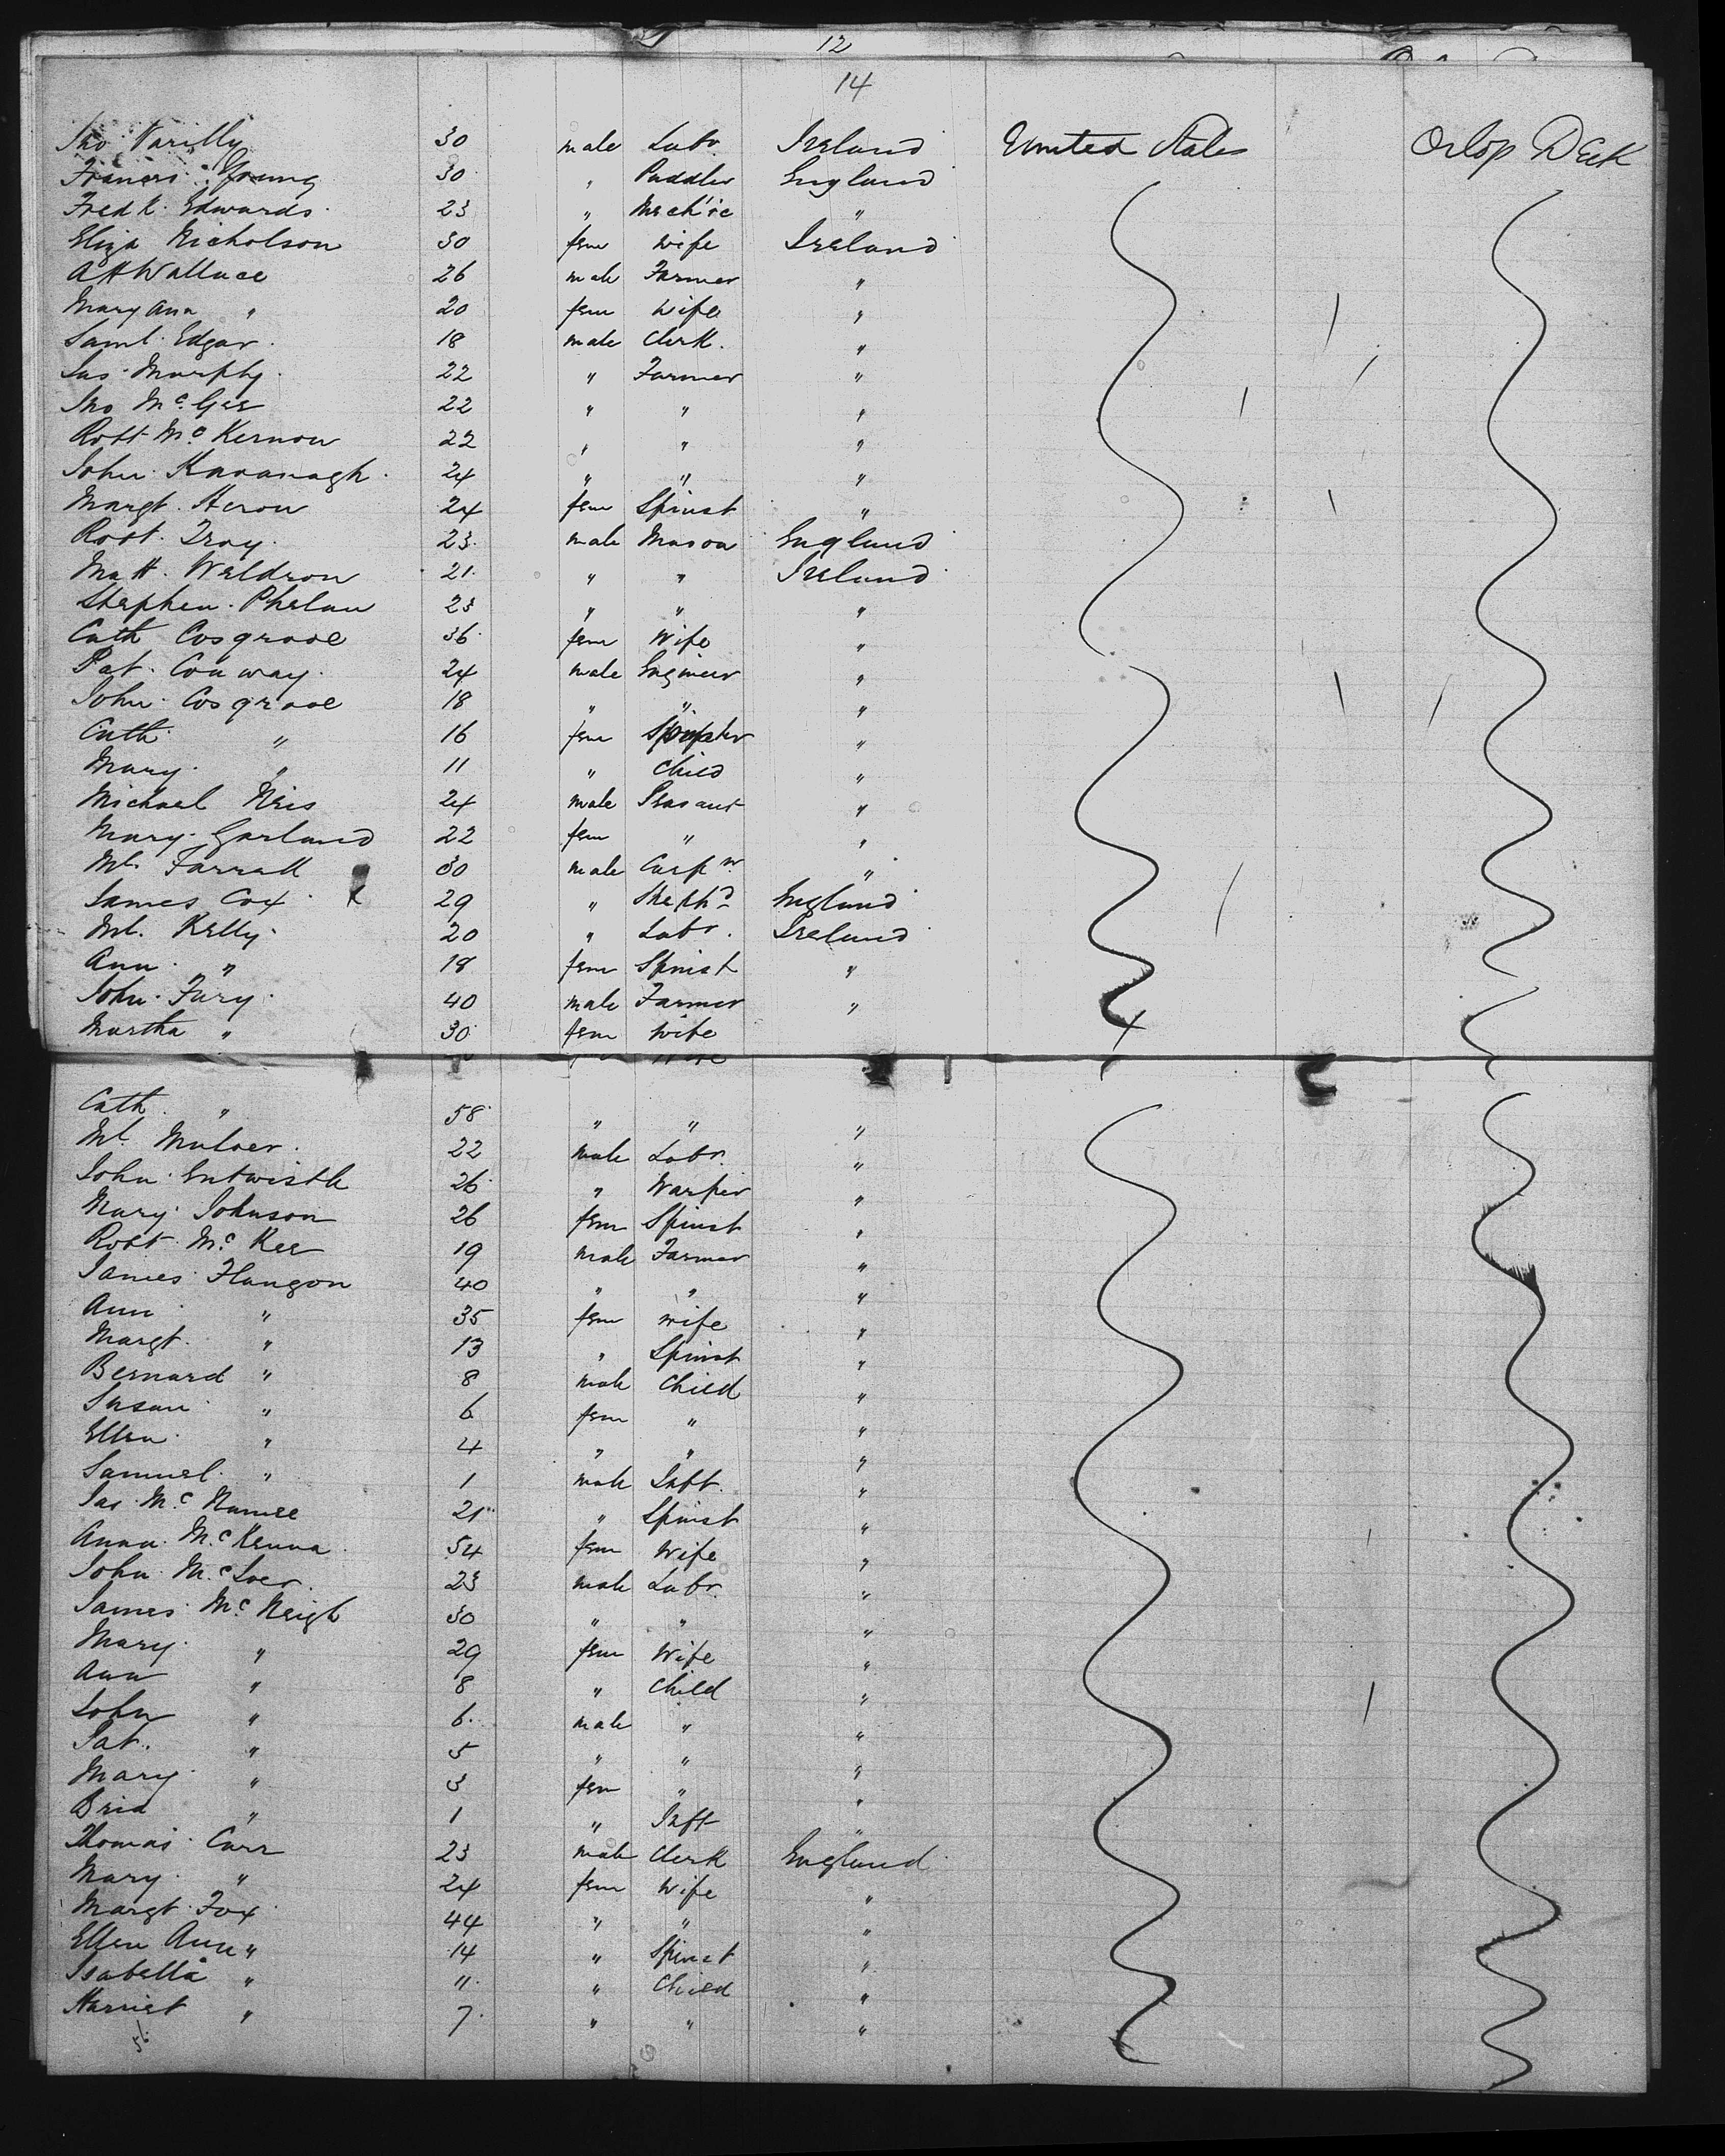 12
14
Jno Varilly 30 male Labr. Ireland United States Orlop Deck
Francis Young 30 " Puddler England
Fredk. Edwards 23 " Mech'ic "
Eliza Nicholson 30 fem Wife Ireland
A H Wallace 26 male Farmer "
Mary Ann " 20 fem Wife "
Saml. Edgar 18 male Clerk. "
Jas. Murphy 22 " Farmer "
Jno McGee 22 " " "
Robt McKernon 22 " " "
John Kavanagh 24 " " "
Margt. Heron 24 fem Spinst "
Robt. Troy 23 male Mason England
Matt. Weldron 21 " " Ireland
Stephen Phelan 23 " " "
Cath Cosgrove 36 fem Wife "
Pat. Conway 24 male Engineer "
John Cosgrove 18 " " "
Cath " 16 fem "
Mary " 11 " Child "
Michael 24 male Peasant "
Mary Garland 22 fem " "
Ml. Farrell 30 male Carpr. "
James Cox 29 " Shephd England
Ml. Kelly 20 " Labr. Ireland
Ann " 18 fem Spinst "
John Fury 40 male Farmer "
Martha " 30 fem Wife
Cath " 58 " " "
Ml. 22 male Labr. "
John Entwistle 26 " Warper "
Mary Johnson 26 fem Spinst "
Robt McKee 19 male Farmer "
James 40 " " "
Ann " 35 fem Wife "
Margt. " 13 " Spinst "
Bernard " 8 male Child "
Susan " 6 fem " "
Ellen " 4 " " "
Samuel " 1 male Inft. "
Jas. McNamee 21 " Spinst "
Anna McKenna 54 fem Wife "
John 23 male Labr. "
James McNeigh 30 " " "
Mary " 29 fem Wife "
Ann " 8 " Child "
John " 6 male " "
Pat. " 5 " " "
Mary " 3 fem " "
Brid " 1 " Inft "
Thomas Carr 23 male Clerk England
Mary " 24 fem Wife "
Margt Fox 44 " " "
Ellen Ann " 14 " Spinst "
Isabella " 11 " Child "
Harriet " 7 " " "
56